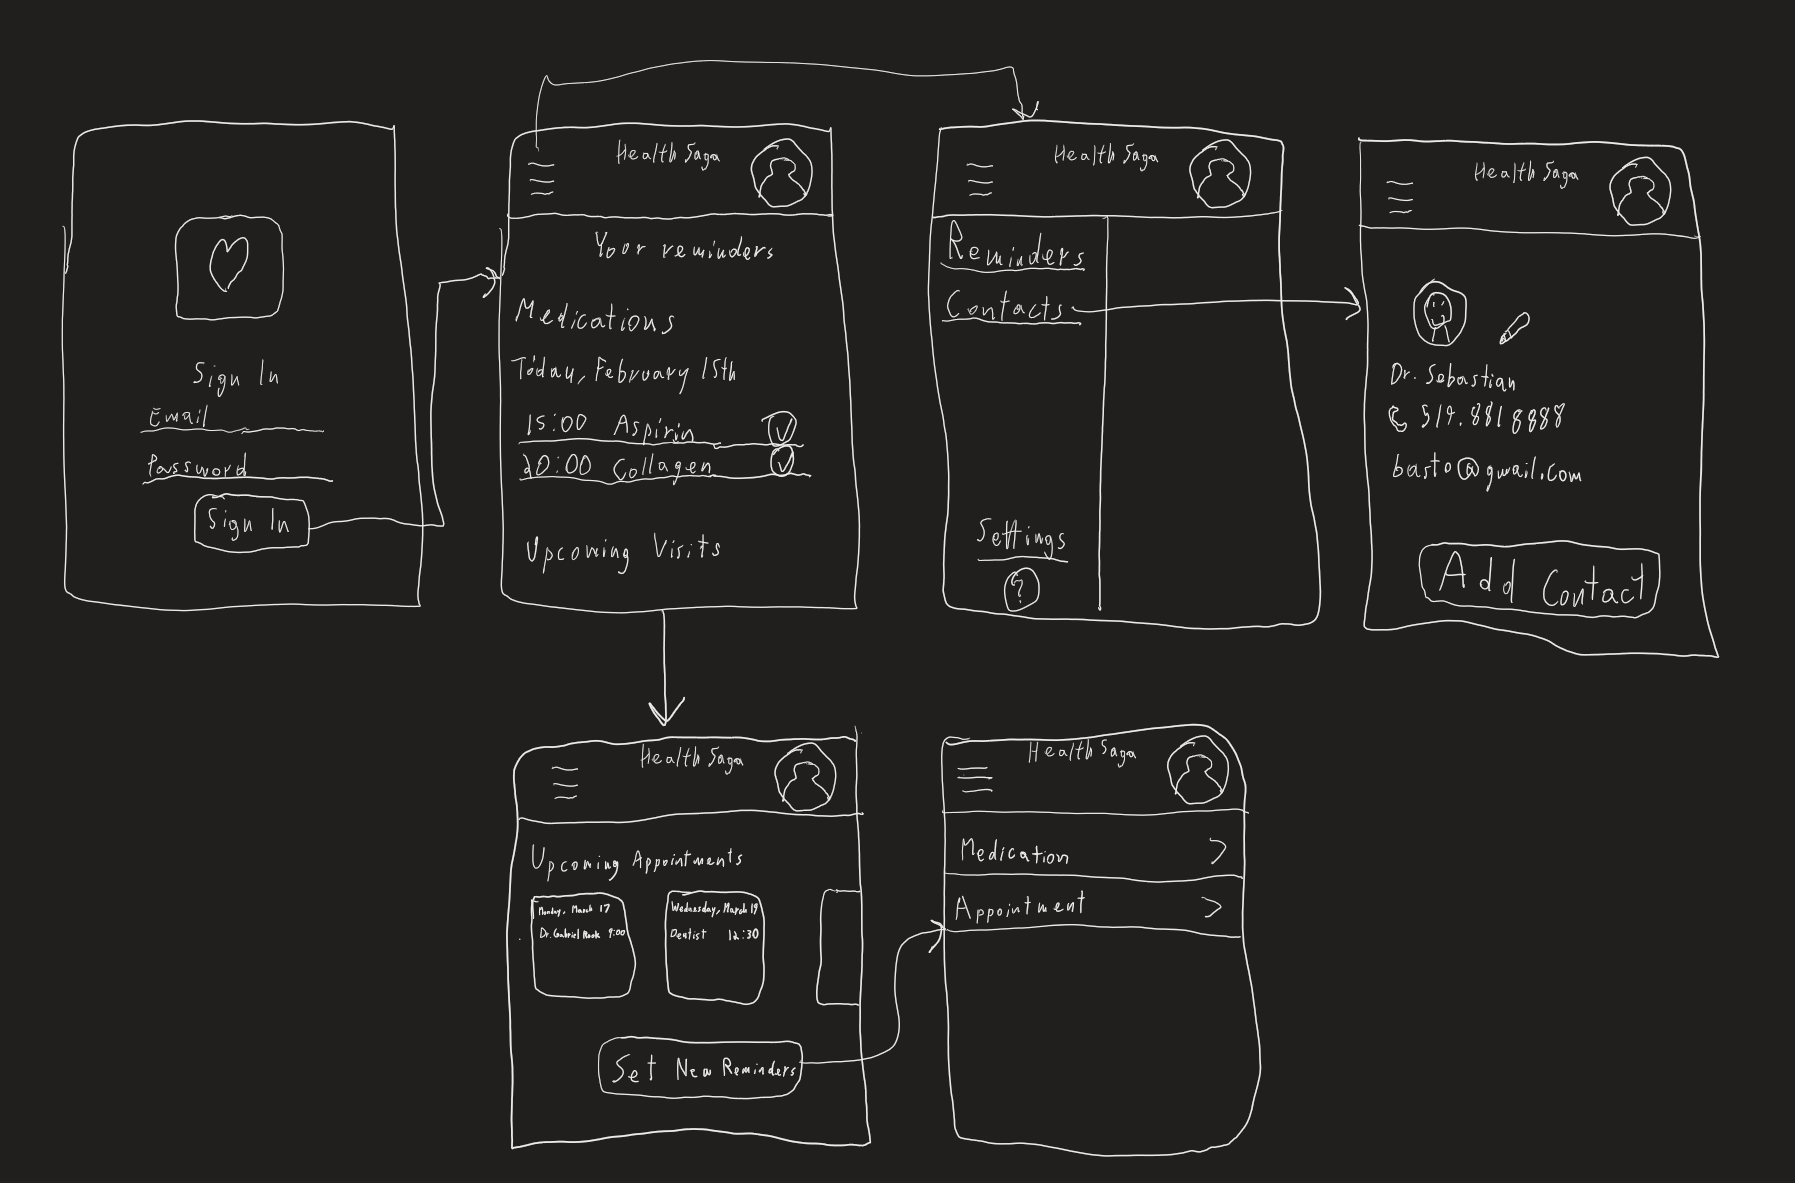 Sign In
Email
Password
Sign In
Health Saga
Your reminders
Medications
Today, February 15th
15:00 Aspirin
20:00 Collagen
Upcoming Visits
Health Saga
Reminders
Contacts
Settings
?
Health Saga
Dr. Sebastian
519.881 8888
basto@gmail.com
Add Contact
Health Saga
Upcoming Appointments
Monday, March 17
Dr. Gabriel 9:00
Wednesday, March 19
Dentist 12:30
Set New Reminders
Health Saga
Medication >
Appointment >